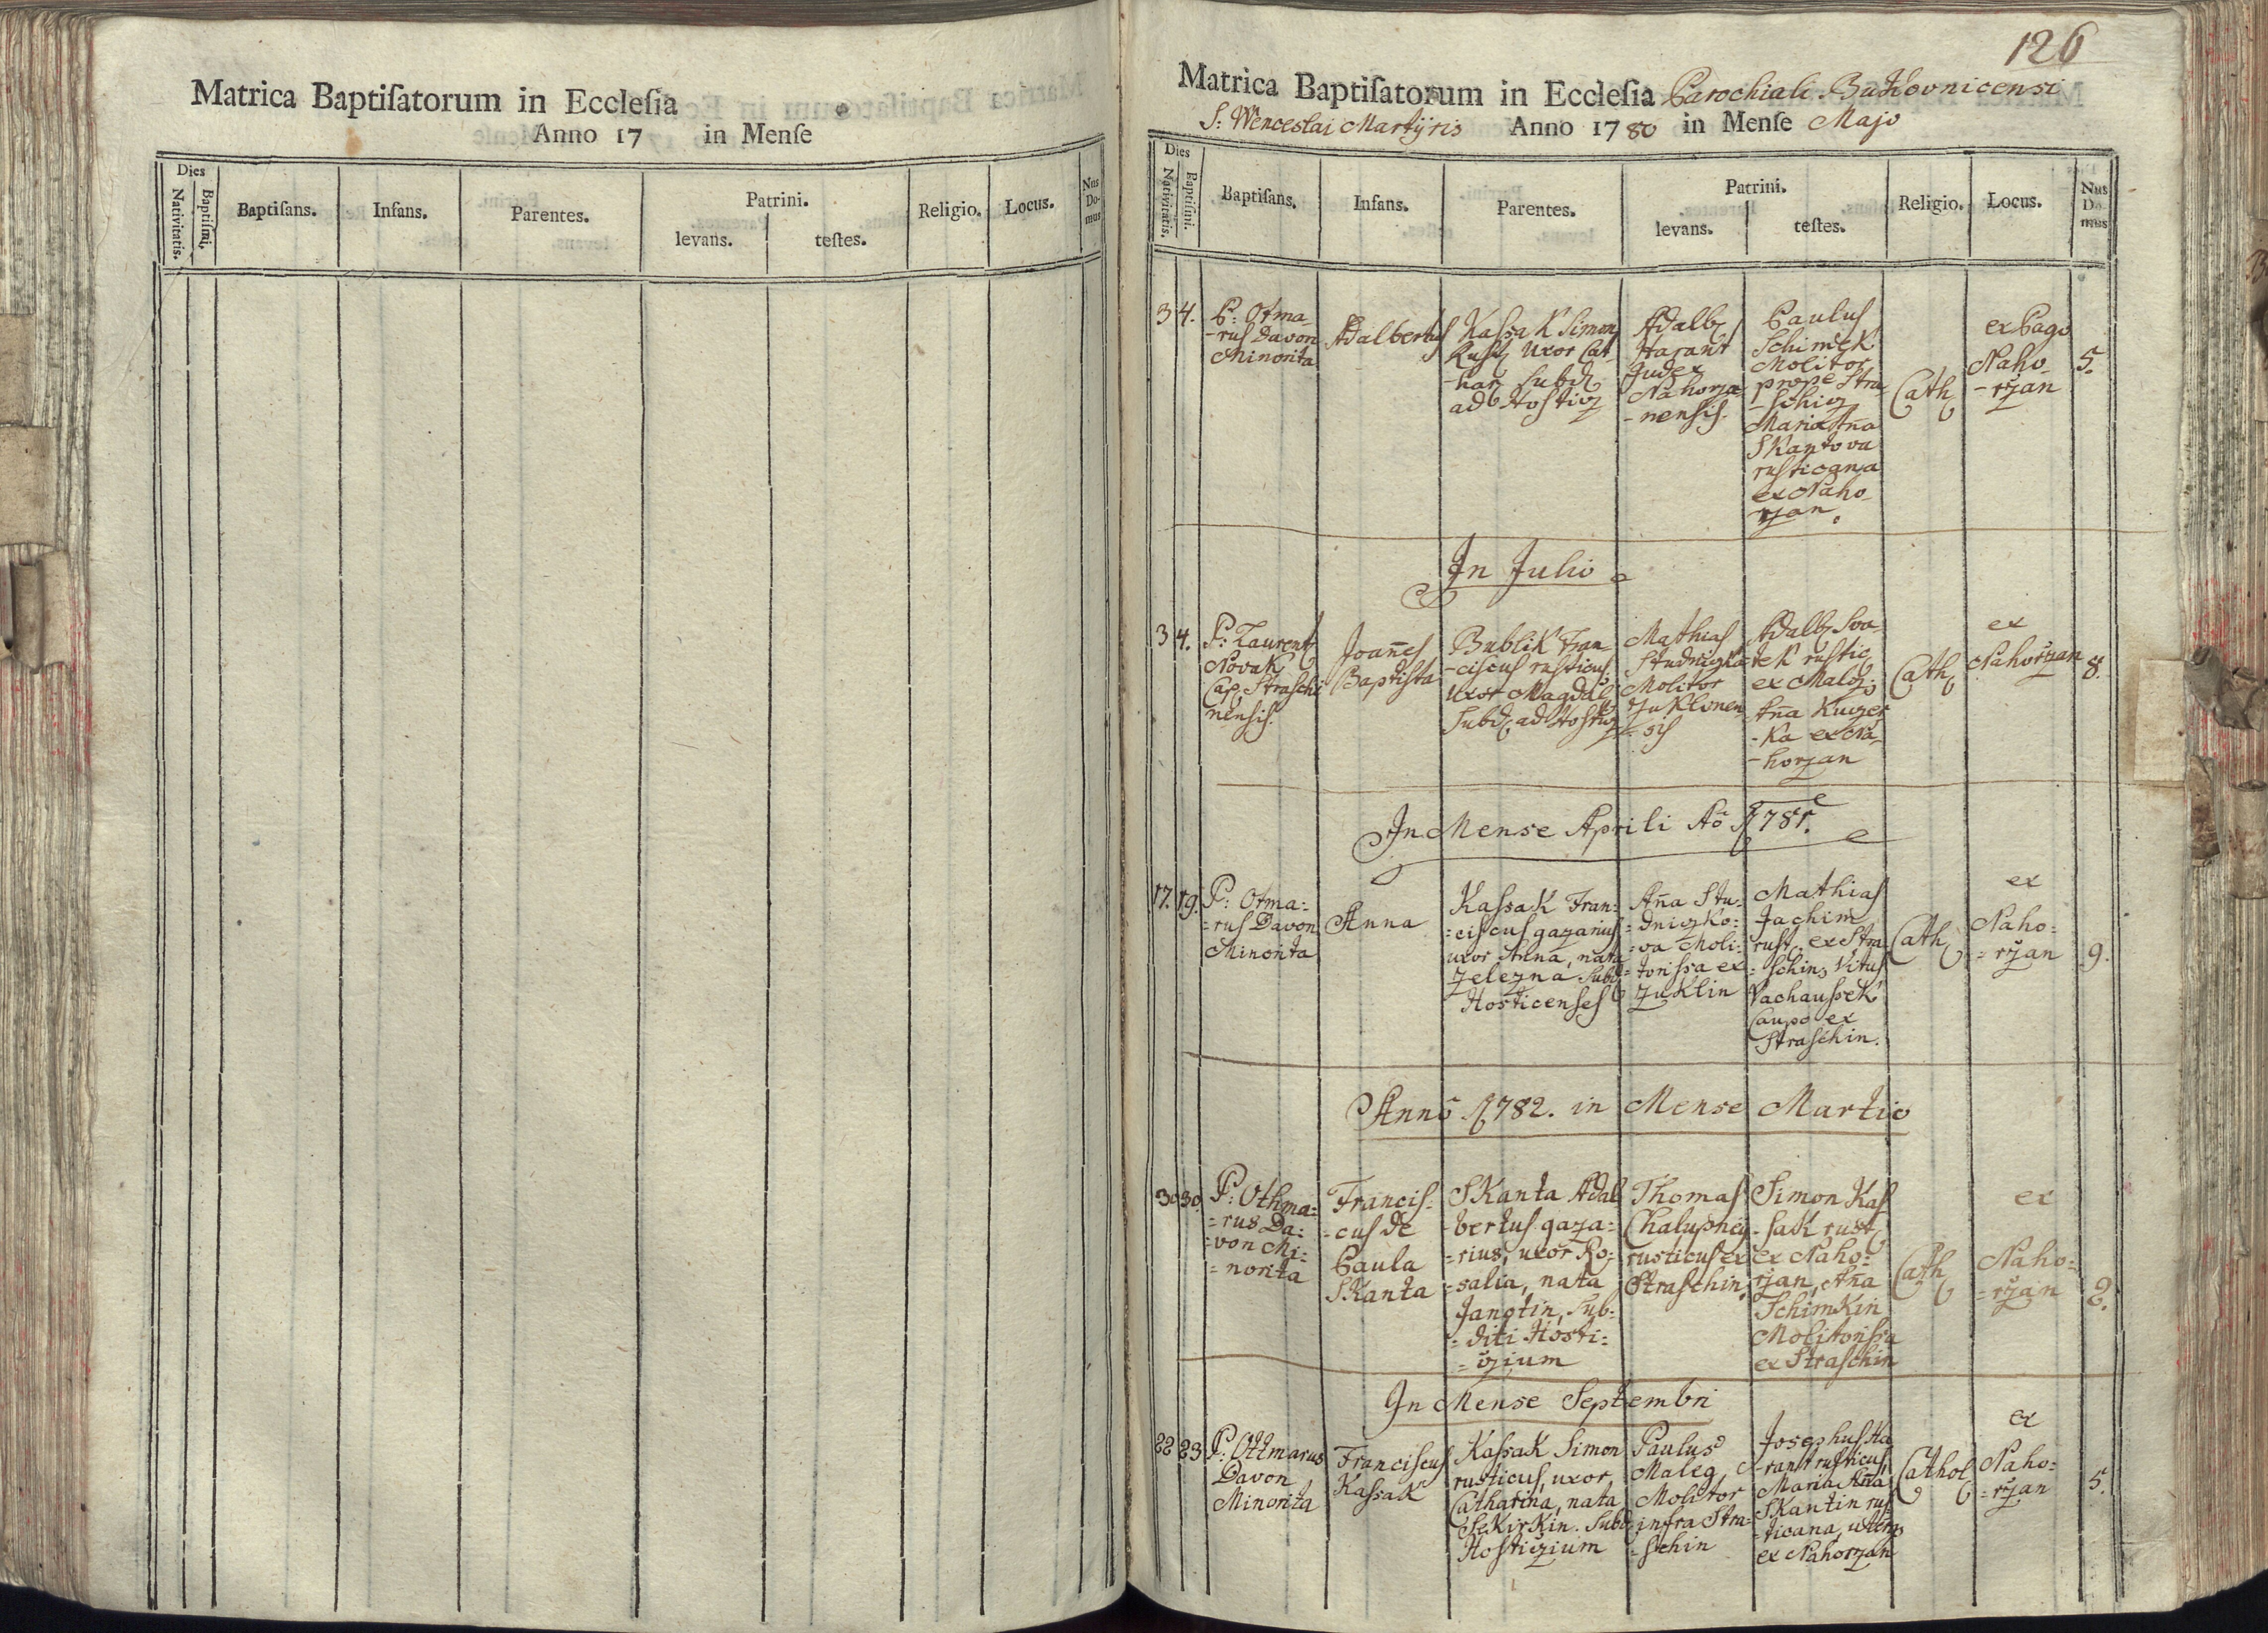 Matrica Baptiſatorum in Eccleſia
Anno 17 in Menſe
Dies
Nativitatis.
Baptiſmi.
Baptiſans.
Infans.
Parentes.
Patrini.
levans.
teſtes.
Religio.
Locus.
Nus
Do-
mus
126
Matrica Baptiſatorum in Eccleſia Parochiali Bukovnicensi
S: Wenceslai Martÿris Anno 1780 in Menſe Majo
Dies
Nativitatis.
Baptiſmi.
Baptiſans.
Infans.
Parentes.
Patrini.
levans.
teſtes.
Religio.
Locus.
Nus
Do-
mus
3 4.
P: Otma-
-rus Davon
Minorita
Adalbertus
Kaſsak Simon
Rust Uxor Cat
-har subd
ad Hostiz
Adalb
Harant
Judex
Nahorza
-nensis.
Paulus
Schimek
Molitor
prope Stra
-schiz
Maria Aña
Skantova
rusticana
ex Naho
rzan.
Cath
ex Pago
Naho
-rżan
5.
In Julio
3 4.
P: Laurent
Novak
Cap. Straschi
nensis.
Joañes
Baptista
Bublik Fran
-ciscus rusticus
Uxor Magdal
Subd. ad Hostiz
Mathias
Studnizka
Molitor
Zuklinen
-sis
Adalb Sva-
tek rustic
ex Maloz.
Aña Kuczer
-ka ex Na-
-horzan
Cath
ex
Nahorżan
8.
In Mense Aprili Aō 1781.
17. 19.
P: Otma:
=rus Davon
Minorita
Anna
Kaſsak Fran:
=ciscus gazarius
uxor Anna, nata
Zelezna Subd
Hosticenses
Aña Stu:
=dnizko:
=va Moli:
=torissa ex
Zuklin
Mathias
Jachim
rust. ex Stra
=schin, Vitus
Vachauſsek
Caupo ex
Straschin.
Cath
ex
Naho:
=rżan
9.
Annō 1782. in Mense Martio
30 30.
P: Othma:
=rus Da:
=von Mi:
=norita
Francis-
-cus de
Paula
Skanta
Skanta Adal
-bertus gaza:
=rius, uxor Ro:
=salia, nata
Jangtin, Sub:
=diti Hosti:
=zium
Thomas
Chalupnẏ
rusticus ex
Straschin.
Simon Kaſ
-sak rust
ex Naho:
rzan, Aña
Schimkin
Molitoriſsa
ex Straschin
Cath
ex
Naho:
=rżan
2.
In Mense Septembri
22 23
P: Ottmarus
Davon
Minorita
Franciscus
Kaſsak
Kaſsak Simon
rusticus, uxor
Catharina, nata
Sekirkin. Subd
Hostizium
Paulus
Maleg,
Molitor
infra Stra:
=schin
Josephus Ha
-rant rusticus,
Maria Aña
Skantin rus
-ticana, uterq
ex Nahorzan
Cathol
ex
Naho:
=rżan
5.